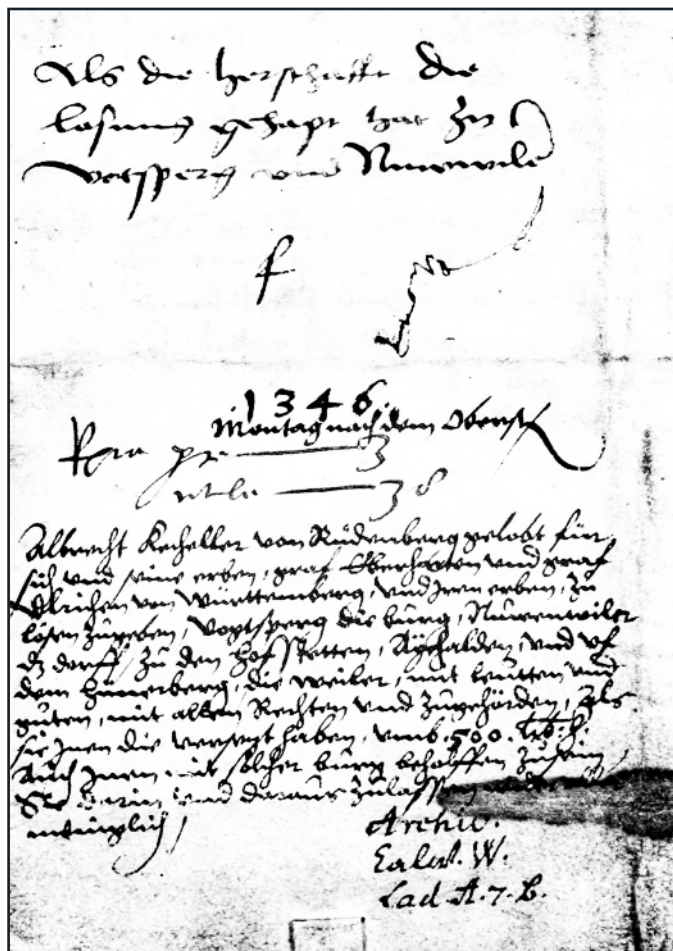 Als die herschafft die
losung gehapt hat zu
Vogtsperg und Nuwewile
1346.
Montag nach dem Oberst
3
3 8
Albrecht Kecheller von Rüdenberg gelobt für
sich vnd seine erben, graf Eberharten vnd graf
Vlrichen von Württemberg, vnd jren erben, zu
lösen zugeben, Vogtsperg die burg, Nuwenwiler
dz dorff, zu den Hofstetten, Aychalden, vnd vf
dem Hünerberg, die weiler, mit leütten vnd
guten, mit allen Rechten vnd zugehörden, Als
sie jnen die versezt haben, vmb .500. lb. h.
Auch jnen mit solcher burg beholffen zusein
Sie darin vnd daraus zulassen
Archiv.
W.
Lad. A. 7. B.